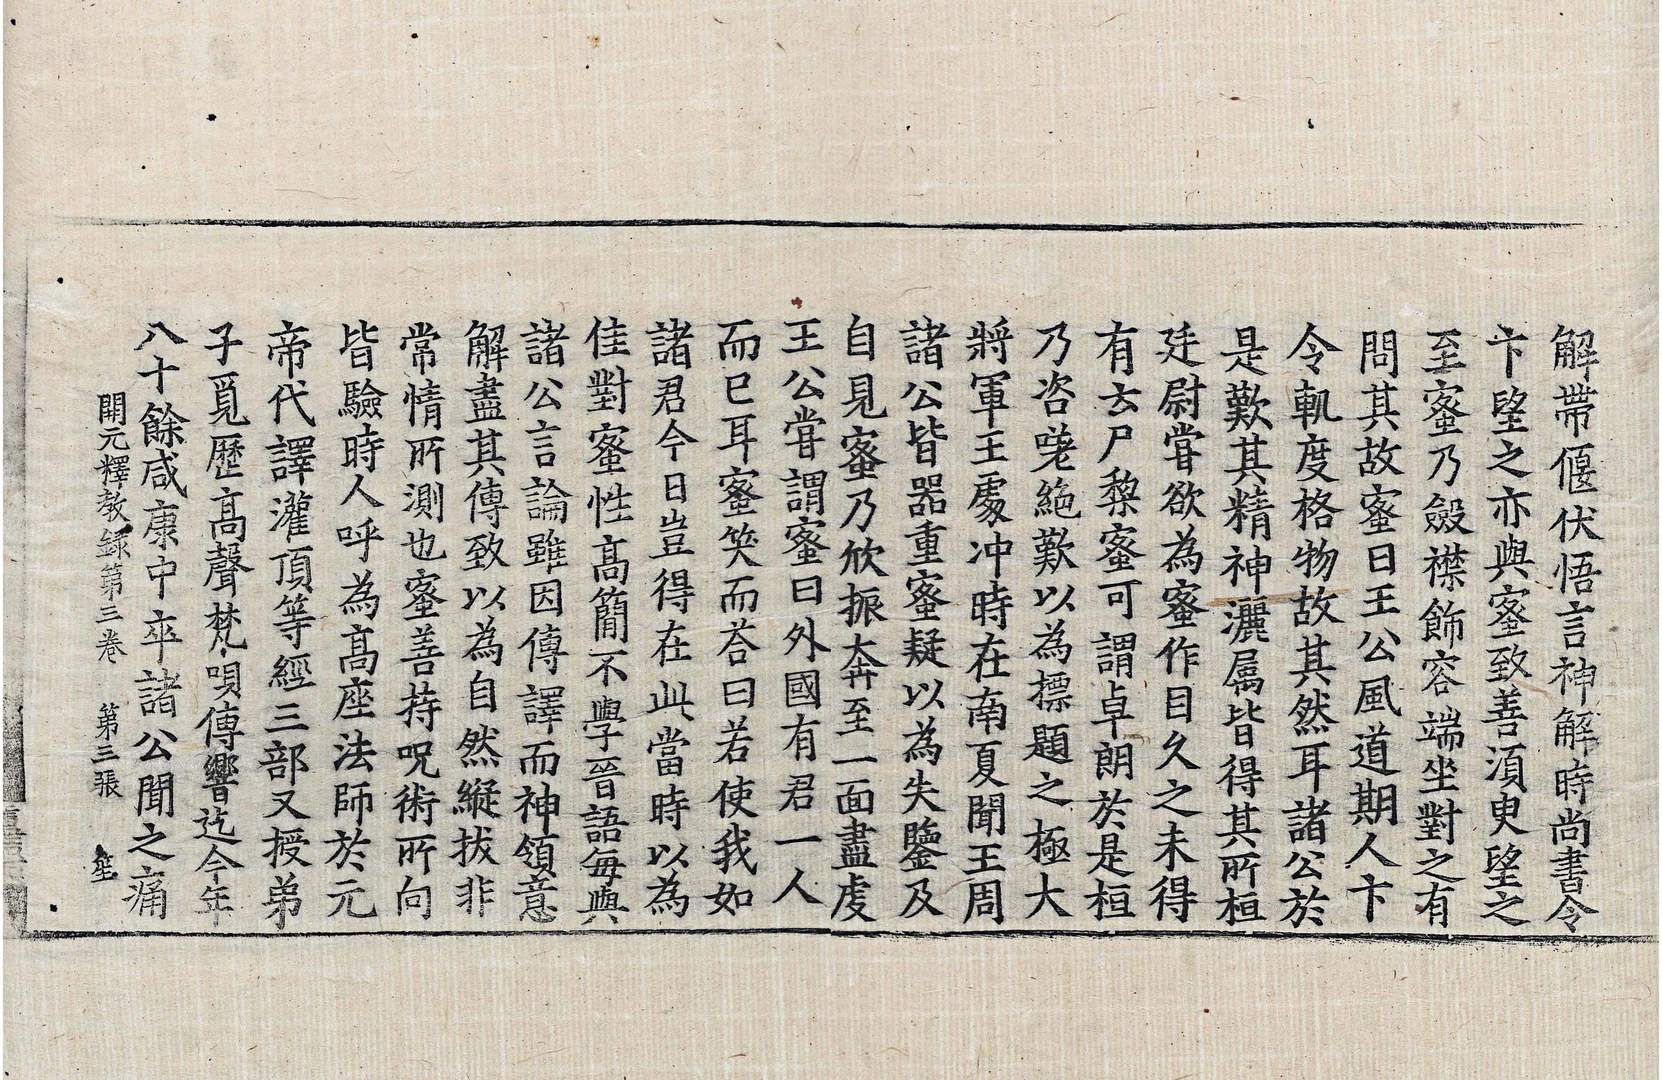 解帶偃伏悟言神解時尚書令
卞望之亦與蜜致善湏臾望之
至蜜乃斂襟飾容端坐對之有
問其故蜜曰王公風道期人卞
令軌度格物故其然耳諸公於
是歎其精神灑属皆得其所桓
廷尉甞欲為蜜作目久之未得
有云尸黎蜜可謂卓朗於是桓
乃咨嗟絶歎以為摽題之極大
將軍王處冲時在南夏聞王周
諸公皆器重蜜疑以為失鑒及
自見蜜乃欣振奔至一面盡虔
王公甞謂蜜曰外國有君一人
而已耳蜜笑而荅曰若使我如
諸君今日豈得在此當時以為
佳對蜜性高簡不學晉語每與
諸公言論雖因傳譯而神領意
解盡其傳致以為自然縱拔非
常情所測也蜜善持呪術所向
皆驗時人呼為高座法師於元
帝代譯灌頂等經三部又授弟
子覓歷高聲梵唄傳響迄今年
八十餘咸康中卒諸公聞之痛
開元釋教録第三卷 第三張 笙